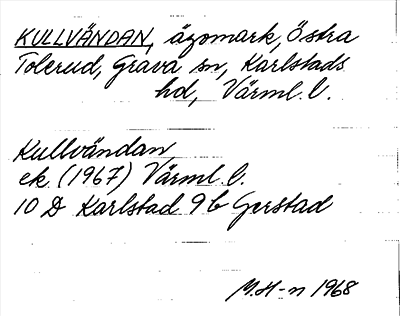 KULLVÄNDAN, ägomark, Östra
Tolerud, Grava sn, Karlstads
hd, Värml. l.
Kullvändan
ek. (1967) Värml. l.
10 D Karlstad 9 b Gerstad
M.H-n 1968